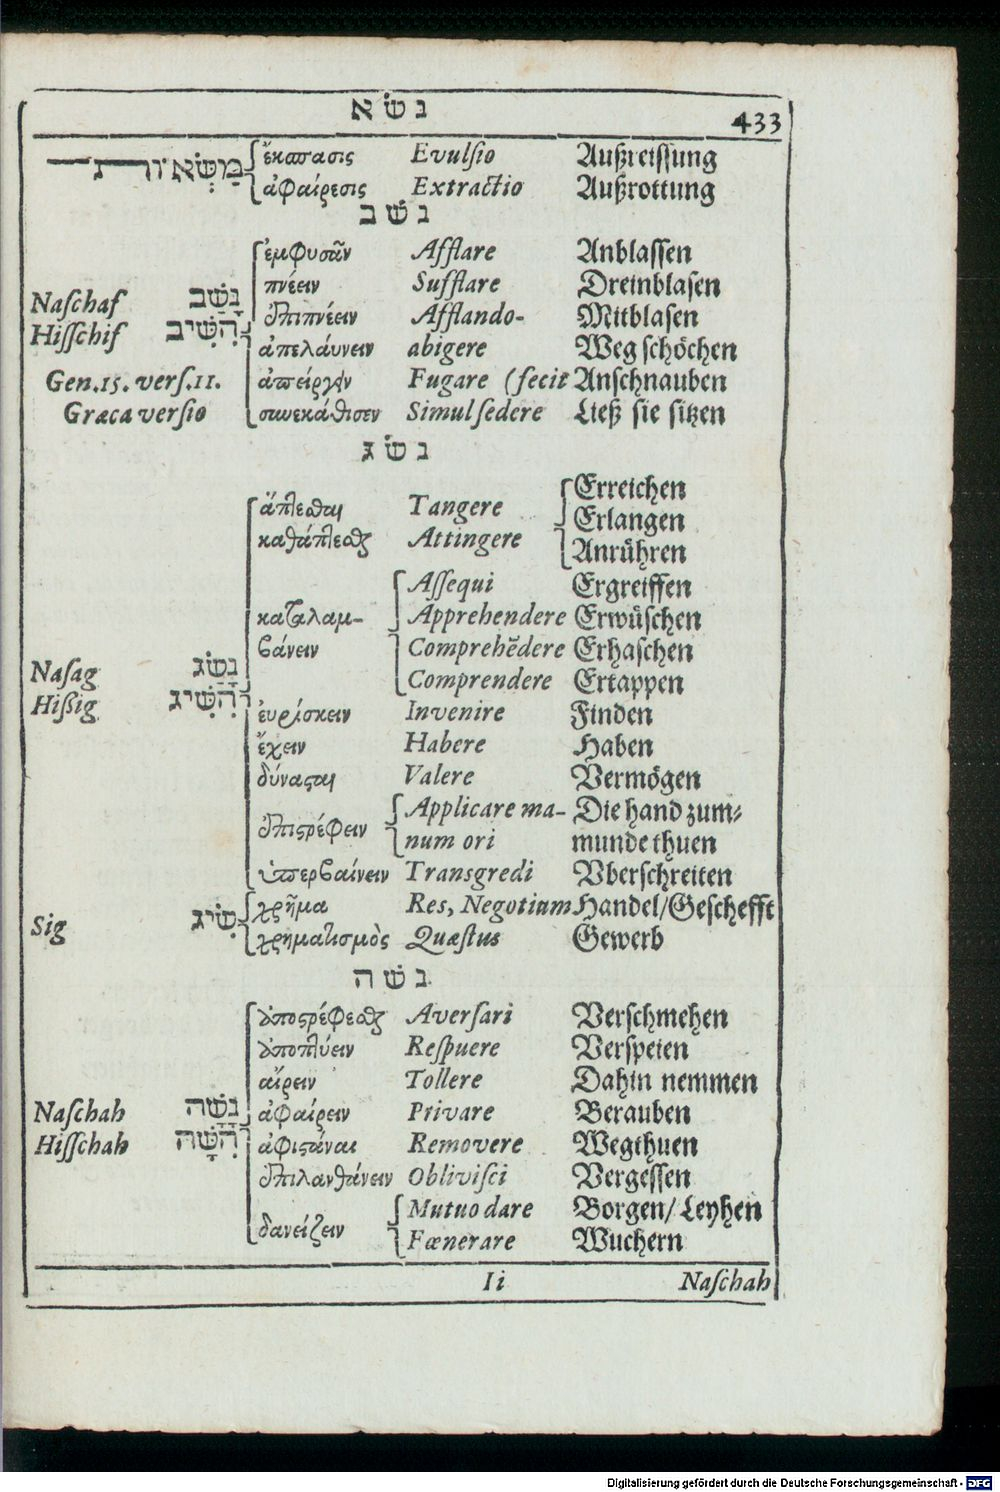 נשׂא 433
מַשְׂאוֹת ἔκσπασις Evulſio Außreiſſung
ἀφαίρεσις Extractio Außrottung
נשׁב
ἐμφυσᾶν Afflare Anblaſſen
πνέειν Sufflare Dreinblaſen
Naſchaf נָשַׁב ἐπιπνέειν Afflando- Mitblaſen
Hiſſchif הִשִּׁיב ἀπελάυνειν abigere Weg ſchöchen
Gen. 15. verſ. 11. ἀπείργειν Fugare (fecit Anſchnauben
Græca verſio συνεκάθισεν Simul ſedere Ließ ſie ſitzen
נשׂג
ἅπτεσθαι Tangere Erreichen
Erlangen
καθάπτεσθαι Attingere Anrühren
Aſſequi Ergreiffen
καταλαμ- Apprehendere Erwüſchen
βάνειν Comprehēdere Erhaſchen
Naſag נָשַׂג Comprendere Ertappen
Hißig הִשִּׂיג ἐυρίσκειν Invenire Finden
ἔχειν Habere Haben
δύναται Valere Vermögen
ἐπιστρέφειν Applicare ma- Die hand zum-
num ori munde thuen
ὑπερβαίνειν Transgredi Vberſchreiten
Sig שִׂיג χρῆμα Res, Negotium Handel/Geſchefft
χρηματισμὸς Quæſtus Gewerb
נשׁה
ἀποστρέφεσθαι Averſari Verſchmehen
ἀποπτύειν Reſpuere Verſpeien
αἴρειν Tollere Dahin nemmen
Naſchah נָשָׁה ἀφαίρειν Privare Berauben
Hiſſchah הִשָּׁה ἀφιστάναι Removere Wegthuen
ἐπιλανθάνειν Obliviſci Vergeſſen
δανείζειν Mutuo dare Borgen/Leyhen
Fœnerare Wuchern
Ii Naſchah
Digitalisierung gefördert durch die Deutsche Forschungsgemeinschaft - DFG